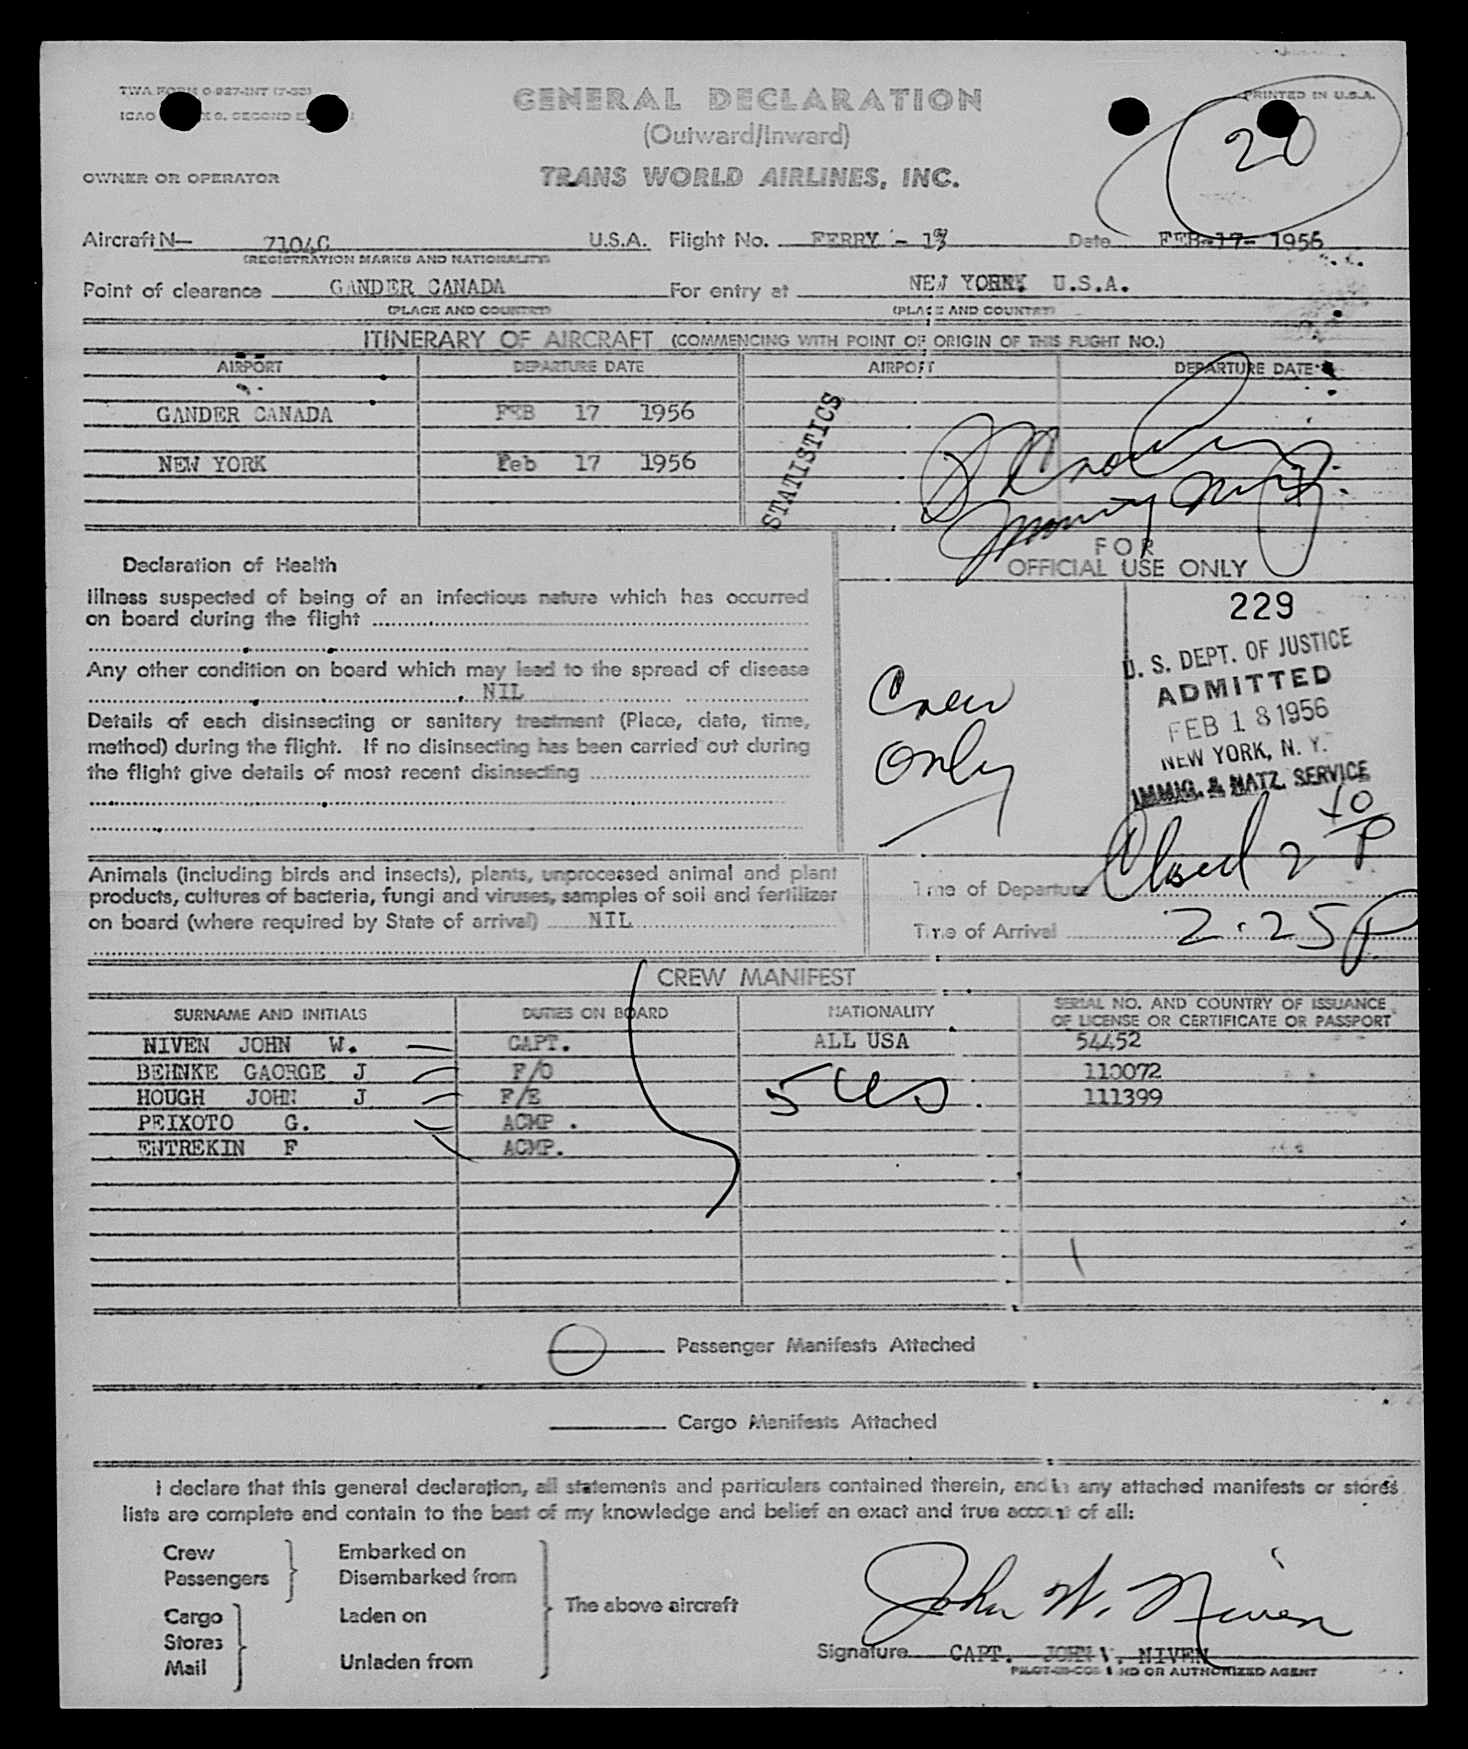 TWA FORM O-927-INT (7-53)
PRINTED IN U.S.A.
ICAO 9, SECOND
GENERAL DECLARATION
(Outward/Inward)
20
OWNER OR OPERATOR
TRANS WORLD AIRLINES, INC.
Aircraft N— 7104C U.S.A. Flight No. FERRY - Date FEB-17- 1956
(REGISTRATION MARKS AND NATIONALITY)
Point of clearance GANDER CANADA For entry at NEW YORK U.S.A.
(PLACE AND COUNTRY) (PLACE AND COUNTRY)
ITINERARY OF AIRCRAFT (COMMENCING WITH POINT OF ORIGIN OF THIS FLIGHT NO.)
AIRPORT DEPARTURE DATE AIRPORT DEPARTURE DATE
GANDER CANADA FEB 17 1956
NEW YORK Feb 17 1956
STATISTICS
FOR
OFFICIAL USE ONLY
Declaration of Health
Illness suspected of being of an infectious nature which has occurred
on board during the flight
Any other condition on board which may lead to the spread of disease
NIL
Details of each disinsecting or sanitary treatment (Place, date, time,
method) during the flight. If no disinsecting has been carried out during
the flight give details of most recent disinsecting
Crew
Only
229
U. S. DEPT. OF JUSTICE
ADMITTED
FEB 18 1956
NEW YORK, N. Y.
IMMIG. & NATZ. SERVICE
Animals (including birds and insects), plants, unprocessed animal and plant
products, cultures of bacteria, fungi and viruses, samples of soil and fertilizer
on board (where required by State of arrival) NIL
Time of Departure Closed 2 40 P
Time of Arrival 2.25 P
CREW MANIFEST
SURNAME AND INITIALS DUTIES ON BOARD NATIONALITY SERIAL NO. AND COUNTRY OF ISSUANCE
OF LICENSE OR CERTIFICATE OR PASSPORT
NIVEN JOHN W. CAPT. ALL USA 54452
BEHNKE GAORGE J F/O 110072
HOUGH JOHN J F/E 5 US 111399
PEIXOTO G. ACMP .
ENTREKIN F ACMP.
O Passenger Manifests Attached
Cargo Manifests Attached
I declare that this general declaration, all statements and particulars contained therein, and in any attached manifests or stores
lists are complete and contain to the best of my knowledge and belief an exact and true account of all:
Crew Embarked on
Passengers Disembarked from
The above aircraft
Cargo Laden on
Stores
Mail Unladen from
John W. Niven
Signature CAPT. JOHN W. NIVEN
PILOT-IN-COMMAND OR AUTHORIZED AGENT